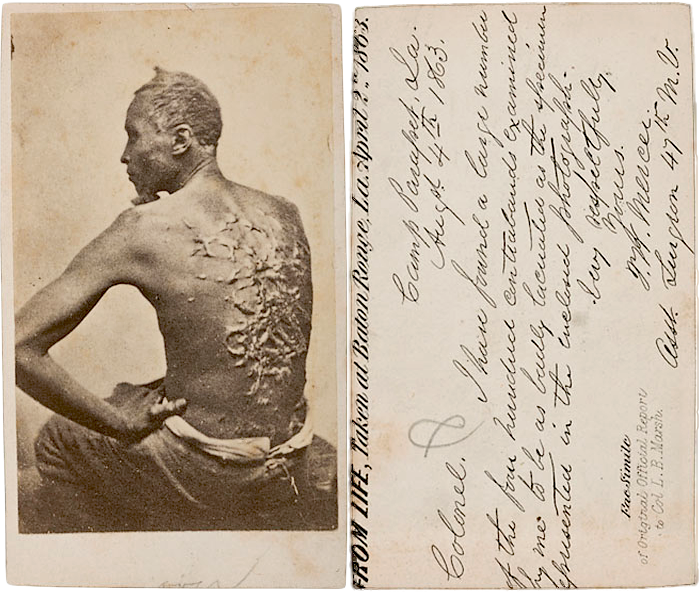 FROM LIFE, Taken at Baton Rouge, La. April 2d 1863.
Camp Parapet, La.
Augst 4th 1863.
Colonel.
I have found a large number
of the four hundred contrabands examined
by me to be as badly lacerated as the specimen
represented in the enclosed photograph.
Very respectfully,
Yours.
J.W. Mercer.
Asst. Surgeon 47th M.V.
Fac-Simile
of Original Official Report
to Col L. B. Marsh.